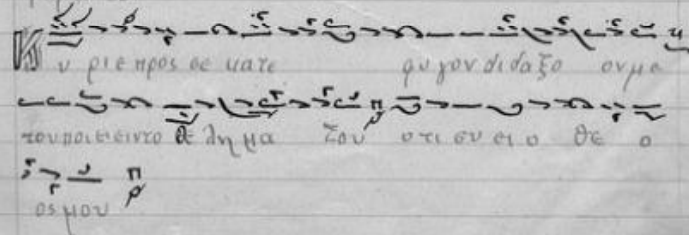 Κυ ριε προς σε κατε φυ γον διδαξο ον με
του ποιειειν το θε λη μα σου οτι συ ει ο θε ο
ος μου